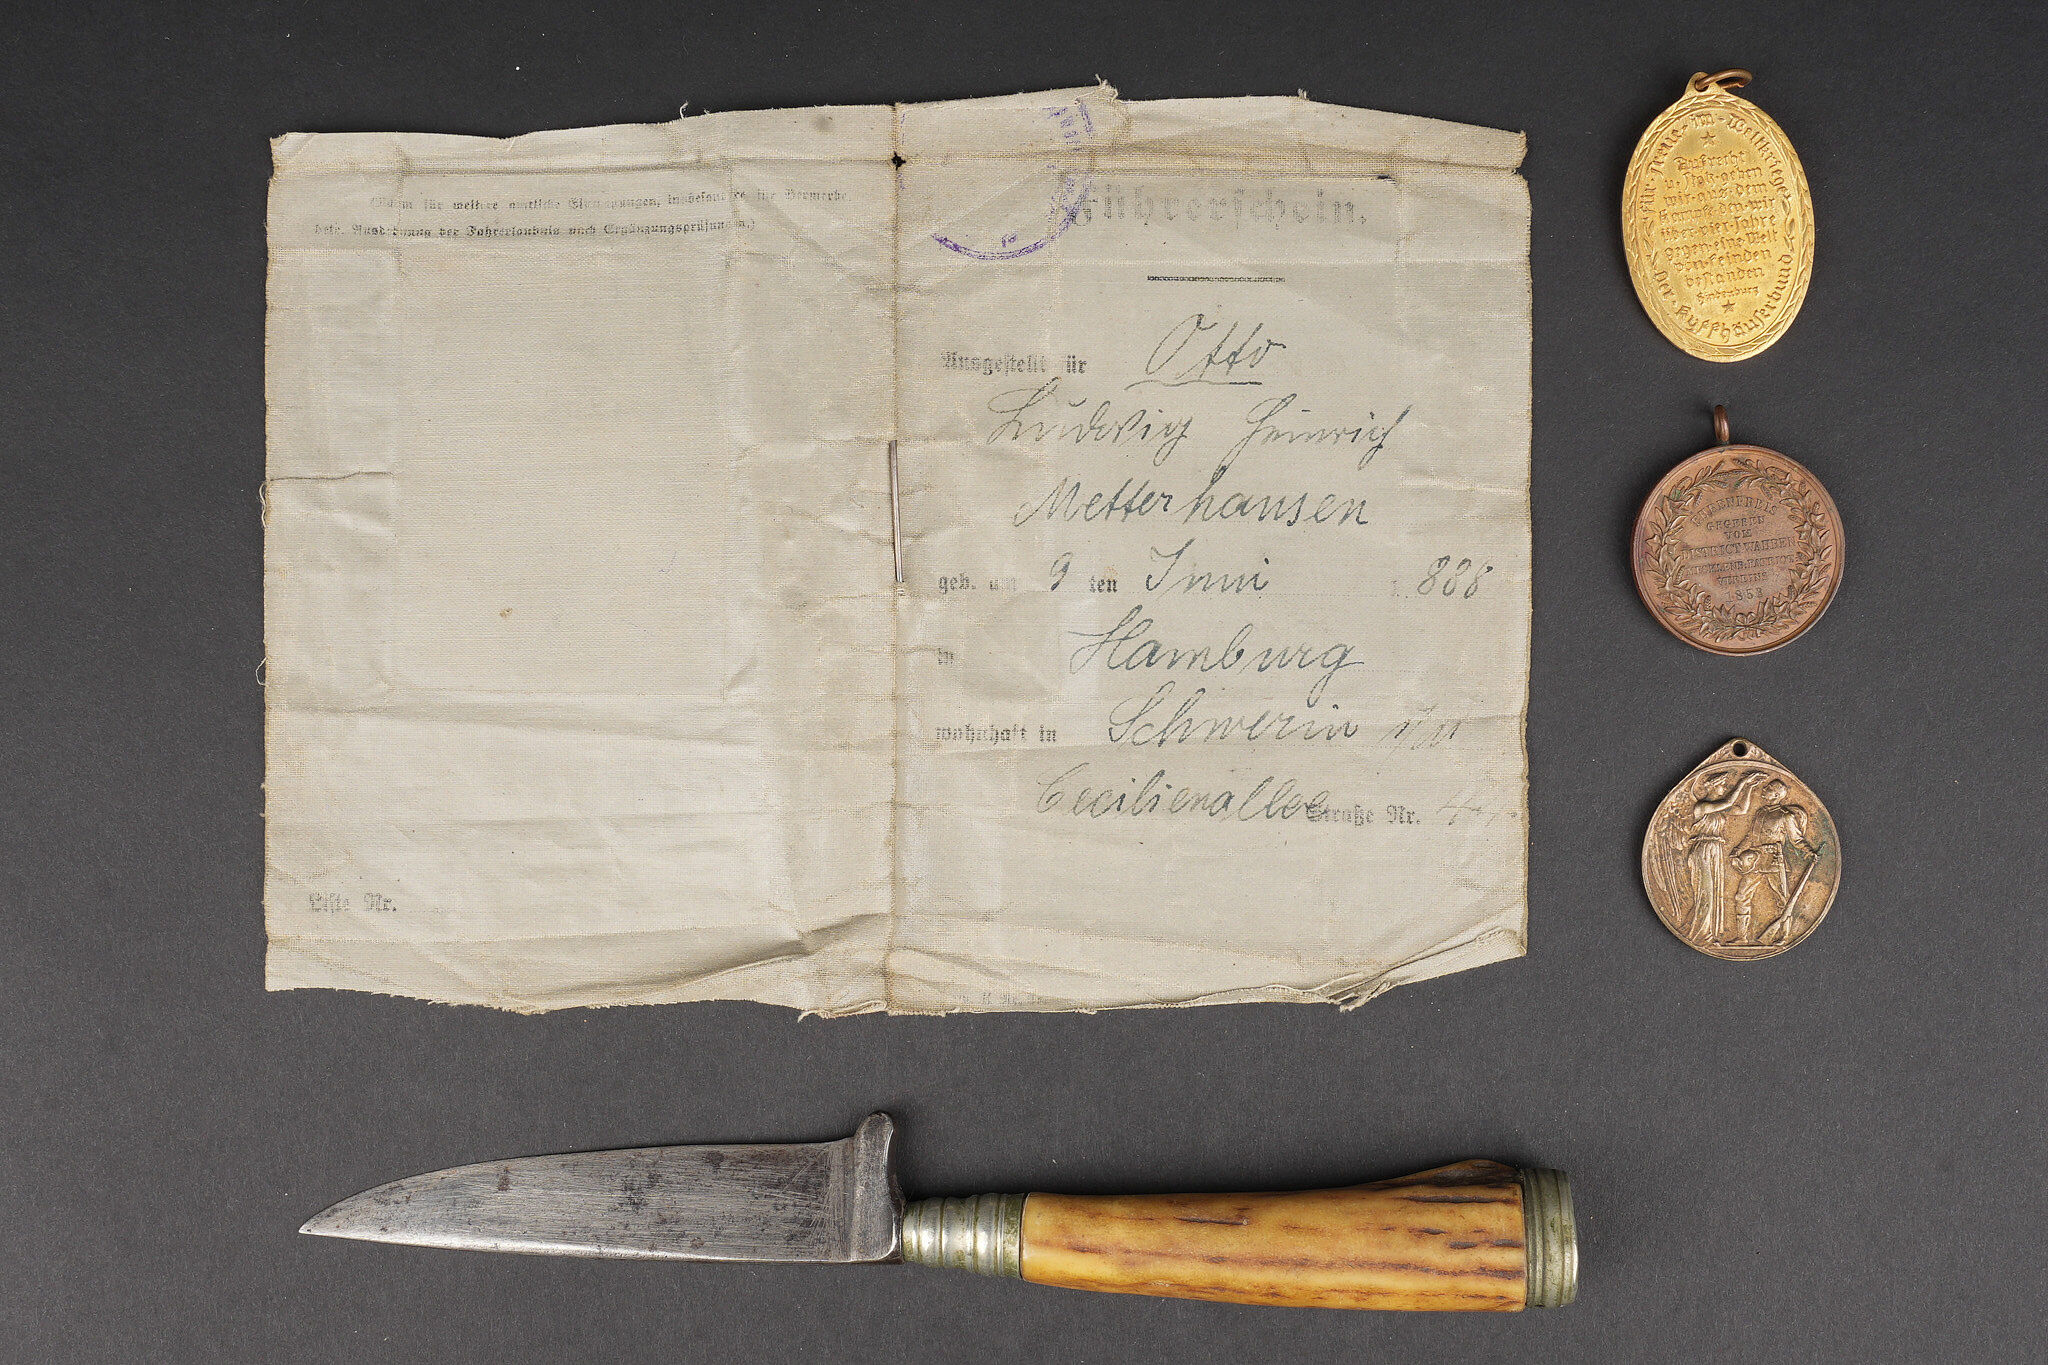 (Raum für weitere amtliche Eintragungen, insbesondere für Vermerke
betr. Ausdehnung der Fahrerlaubnis nach Ergänzungsprüfungen.)
Liste Nr.
Führerschein.
Ausgestellt für Otto
Ludwig Heinrich
Metterhausen
geb. am 9 ten Juni 1888
in Hamburg
wohnhaft in Schwerin i/M
Cecilienallee Straße Nr.
Für·Treue·im·Weltkriege
Aufrecht
u. stolz·gehen
wir·aus·dem
Kampfe·den·wir
über·vier·Jahre
gegen·eine·Welt
von·Feinden
bestanden
Hindenburg
Der·Kyffhäuserbund
EHRENPREIS
GEGEBEN
VOM
DISTRICT WAHREN
MECKLENB. PATRIOT.
VEREINS
1853